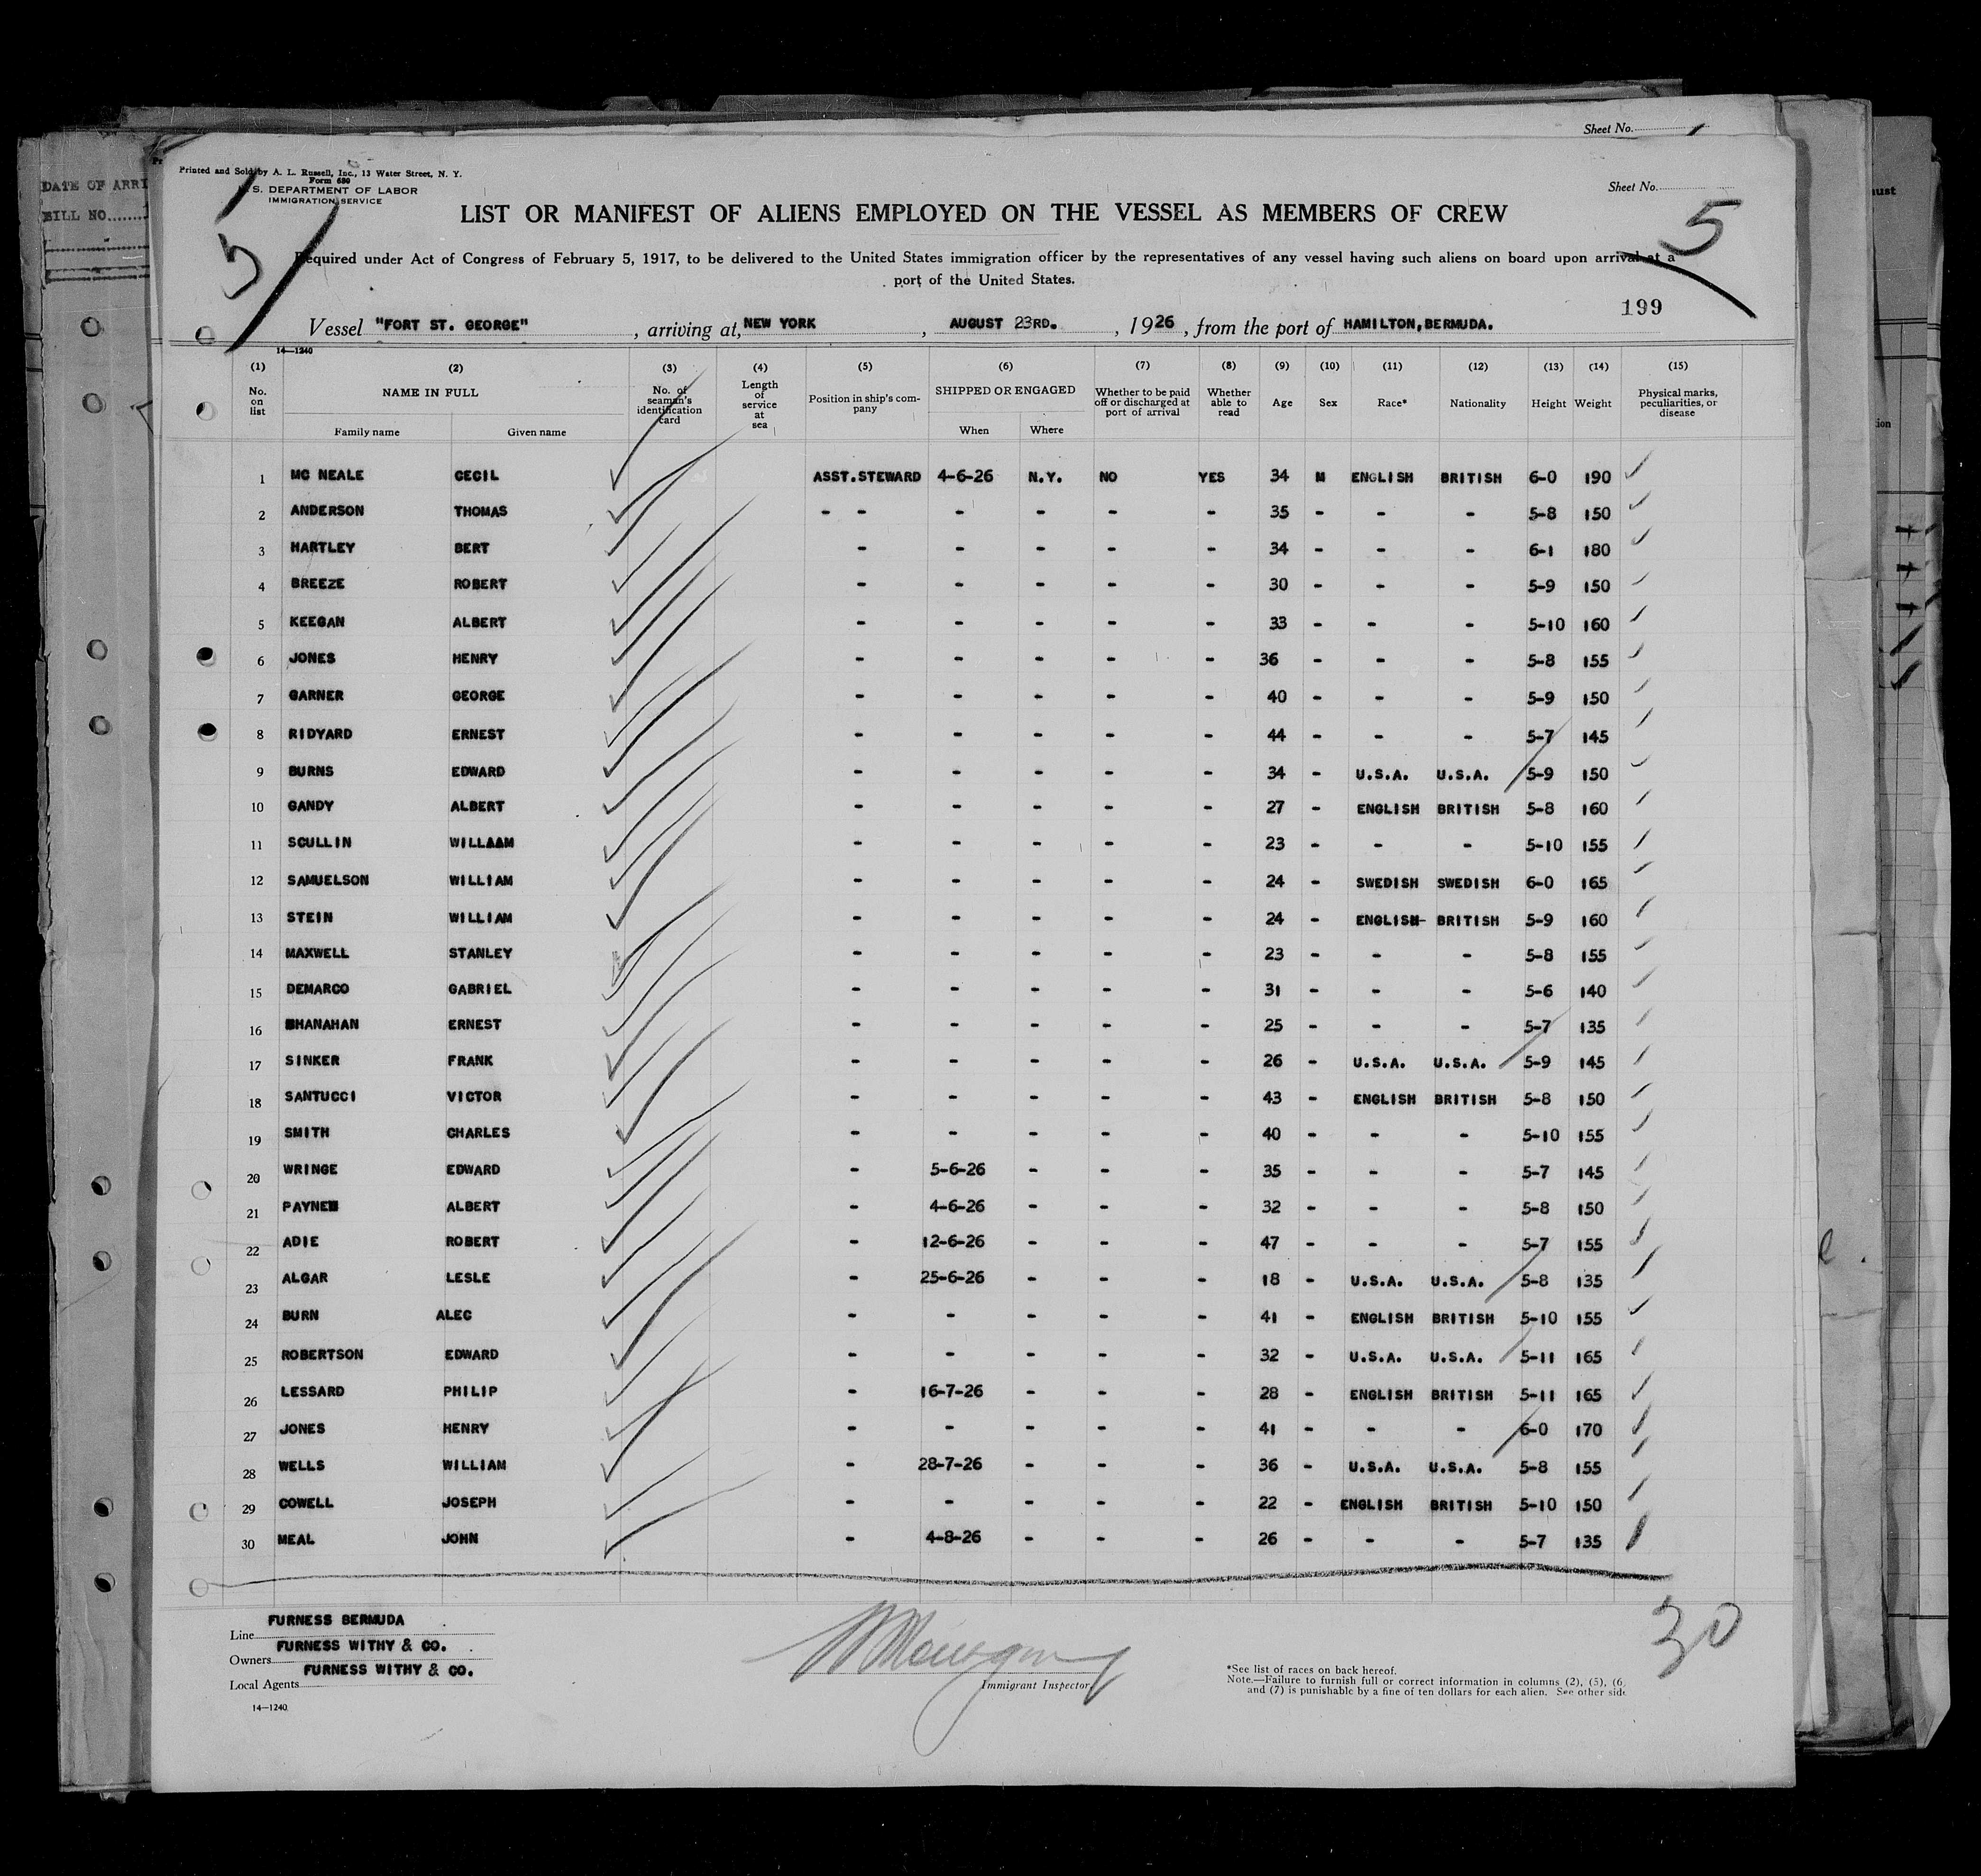 Sheet No.
DATE OF ARRI
BILL NO.
Printed and Sold by A. L. Russell, Inc., 13 Water Street, N. Y.
Form 680
U. S. DEPARTMENT OF LABOR
IMMIGRATION SERVICE
Sheet No.
5
5
LIST OR MANIFEST OF ALIENS EMPLOYED ON THE VESSEL AS MEMBERS OF CREW
Required under Act of Congress of February 5, 1917, to be delivered to the United States immigration officer by the representatives of any vessel having such aliens on board upon arrival at a
port of the United States.
199
Vessel "FORT ST. GEORGE", arriving at, NEW YORK, AUGUST 23RD., 1926, from the port of HAMILTON, BERMUDA.
14—1240
(1) (2) (3) (4) (5) (6) (7) (8) (9) (10) (11) (12) (13) (14) (15)
No. on list NAME IN FULL Family name Given name No. of seaman's identification card Length of service at sea Position in ship's company SHIPPED OR ENGAGED When Where Whether to be paid off or discharged at port of arrival Whether able to read Age Sex Race* Nationality Height Weight Physical marks, peculiarities, or disease
1 MC NEALE CECIL ASST.STEWARD 4-6-26 N.Y. NO YES 34 M ENGLISH BRITISH 6-0 190
2 ANDERSON THOMAS - - - - - - 35 - - - 5-8 150
3 HARTLEY BERT - - - - - 34 - - - 6-1 180
4 BREEZE ROBERT - - - - - 30 - - - 5-9 150
5 KEEGAN ALBERT - - - - - 33 - - - 5-10 160
6 JONES HENRY - - - - - 36 - - - 5-8 155
7 GARNER GEORGE - - - - - 40 - - - 5-9 150
8 RIDYARD ERNEST - - - - - 44 - - - 5-7 145
9 BURNS EDWARD - - - - - 34 - U.S.A. U.S.A. 5-9 150
10 GANDY ALBERT - - - - - 27 - ENGLISH BRITISH 5-8 160
11 SCULLIN WILLAAM - - - - - 23 - - - 5-10 155
12 SAMUELSON WILLIAM - - - - - 24 - SWEDISH SWEDISH 6-0 165
13 STEIN WILLIAM - - - - - 24 - ENGLISH- BRITISH 5-9 160
14 MAXWELL STANLEY - - - - - 23 - - - 5-8 155
15 DEMARCO GABRIEL - - - - - 31 - - - 5-6 140
16 SHANAHAN ERNEST - - - - - 25 - - - 5-7 135
17 SINKER FRANK - - - - - 26 - U.S.A. U.S.A. 5-9 145
18 SANTUCCI VICTOR - - - - - 43 - ENGLISH BRITISH 5-8 150
19 SMITH CHARLES - - - - - 40 - - - 5-10 155
20 WRINGE EDWARD - 5-6-26 - - - 35 - - - 5-7 145
21 PAYNE ALBERT - 4-6-26 - - - 32 - - - 5-8 150
22 ADIE ROBERT - 12-6-26 - - - 47 - - - 5-7 155
23 ALGAR LESLE - 25-6-26 - - - 18 - U.S.A. U.S.A. 5-8 135
24 BURN ALEC - - - - - 41 - ENGLISH BRITISH 5-10 155
25 ROBERTSON EDWARD - - - - - 32 - U.S.A. U.S.A. 5-11 165
26 LESSARD PHILIP - 16-7-26 - - - 28 - ENGLISH BRITISH 5-11 165
27 JONES HENRY - - - - - 41 - - - 6-0 170
28 WELLS WILLIAM - 28-7-26 - - - 36 - U.S.A. U.S.A. 5-8 155
29 COWELL JOSEPH - - - - - 22 - ENGLISH BRITISH 5-10 150
30 MEAL JOHN - 4-8-26 - - - 26 - - - 5-7 135
30
Line FURNESS BERMUDA
Owners FURNESS WITHY & CO.
Local Agents FURNESS WITHY & CO.
14—1240
Immigrant Inspector
*See list of races on back hereof.
Note.—Failure to furnish full or correct information in columns (2), (5), (6)
and (7) is punishable by a fine of ten dollars for each alien. See other side